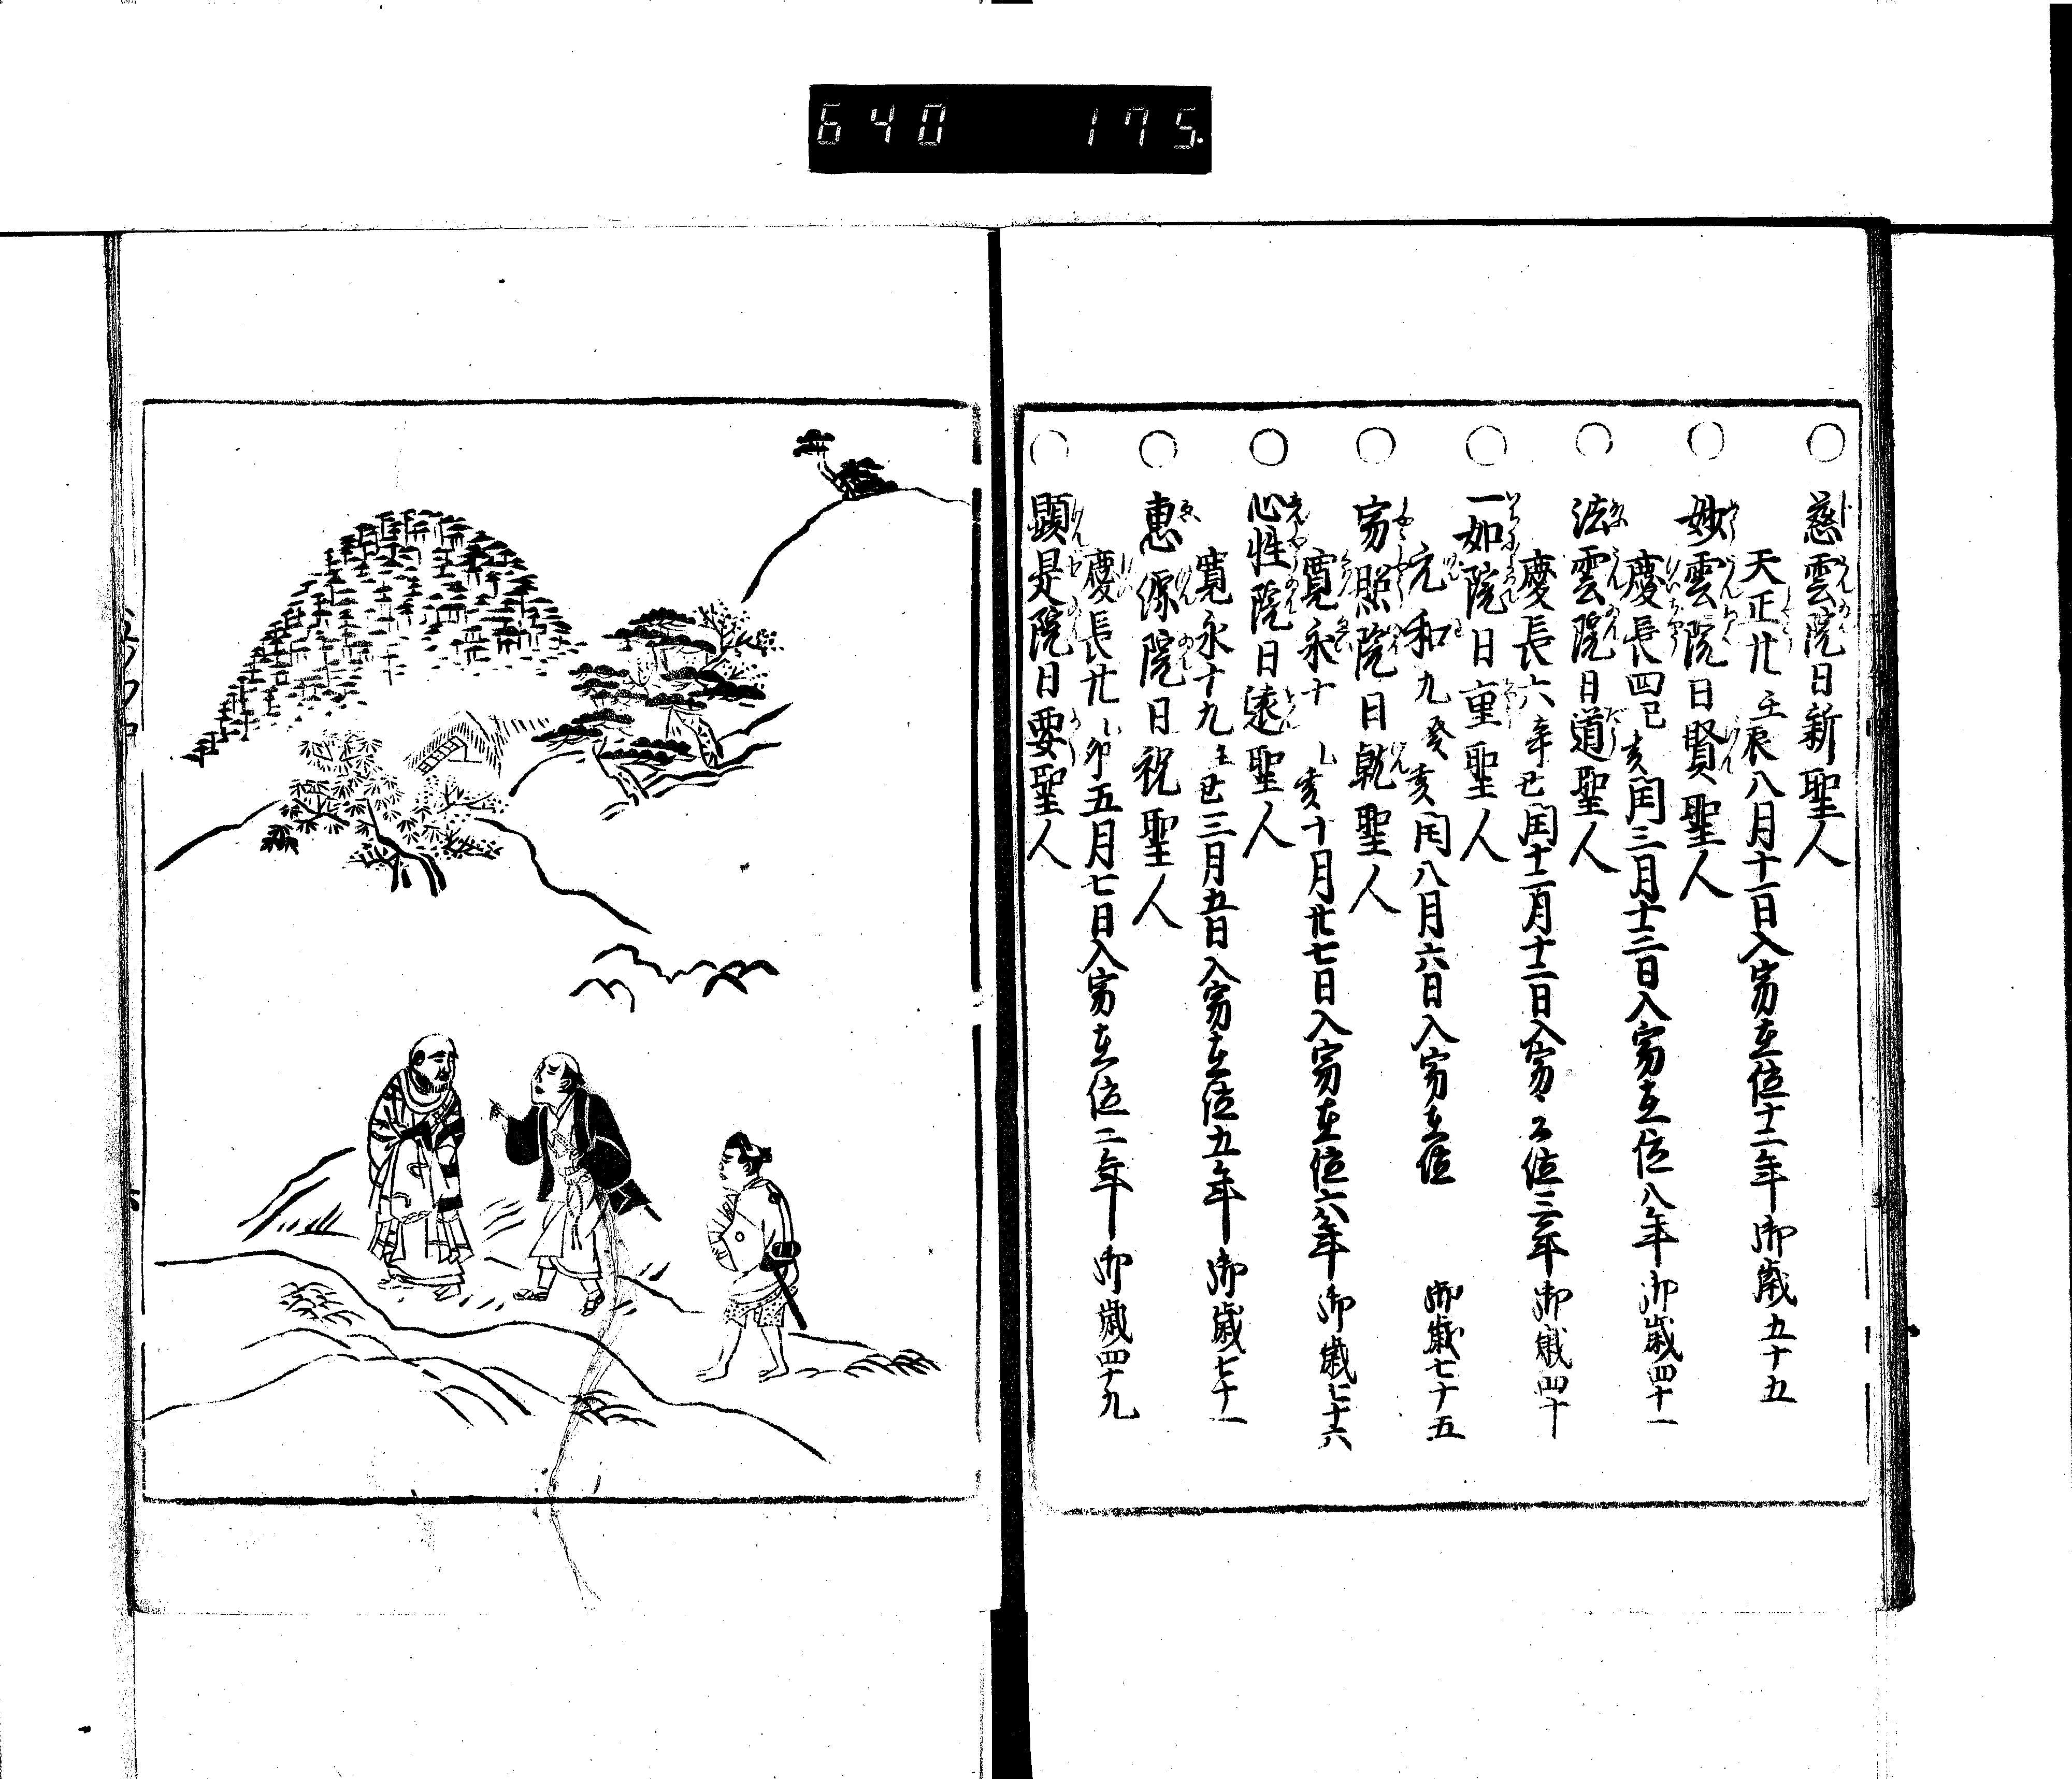 640 175
○ 慈雲院日新聖人
天正廿壬辰八月十一日入寂在位十二年御歳五十五
○ 妙雲院日賢聖人
慶長四己亥閏三月十三日入寂在位八年御歳四十一
○ 法雲院日道聖人
慶長六辛丑閏十一月十二日入寂在位三年御歳四十
○ 一如院日重聖人
元和九癸亥閏八月六日入寂在位 御歳七十五
○ 寂照院日乾聖人
寛永十乙亥十月廿七日入寂在位六年御歳七十六
○ 心性院日遠聖人
寛永十九壬 三月五日入寂在位五年御歳七十一
○ 惠 院日祝聖人
慶長廿乙卯五月七日入寂在位二年御歳四十九
○ 顕是院日要聖人